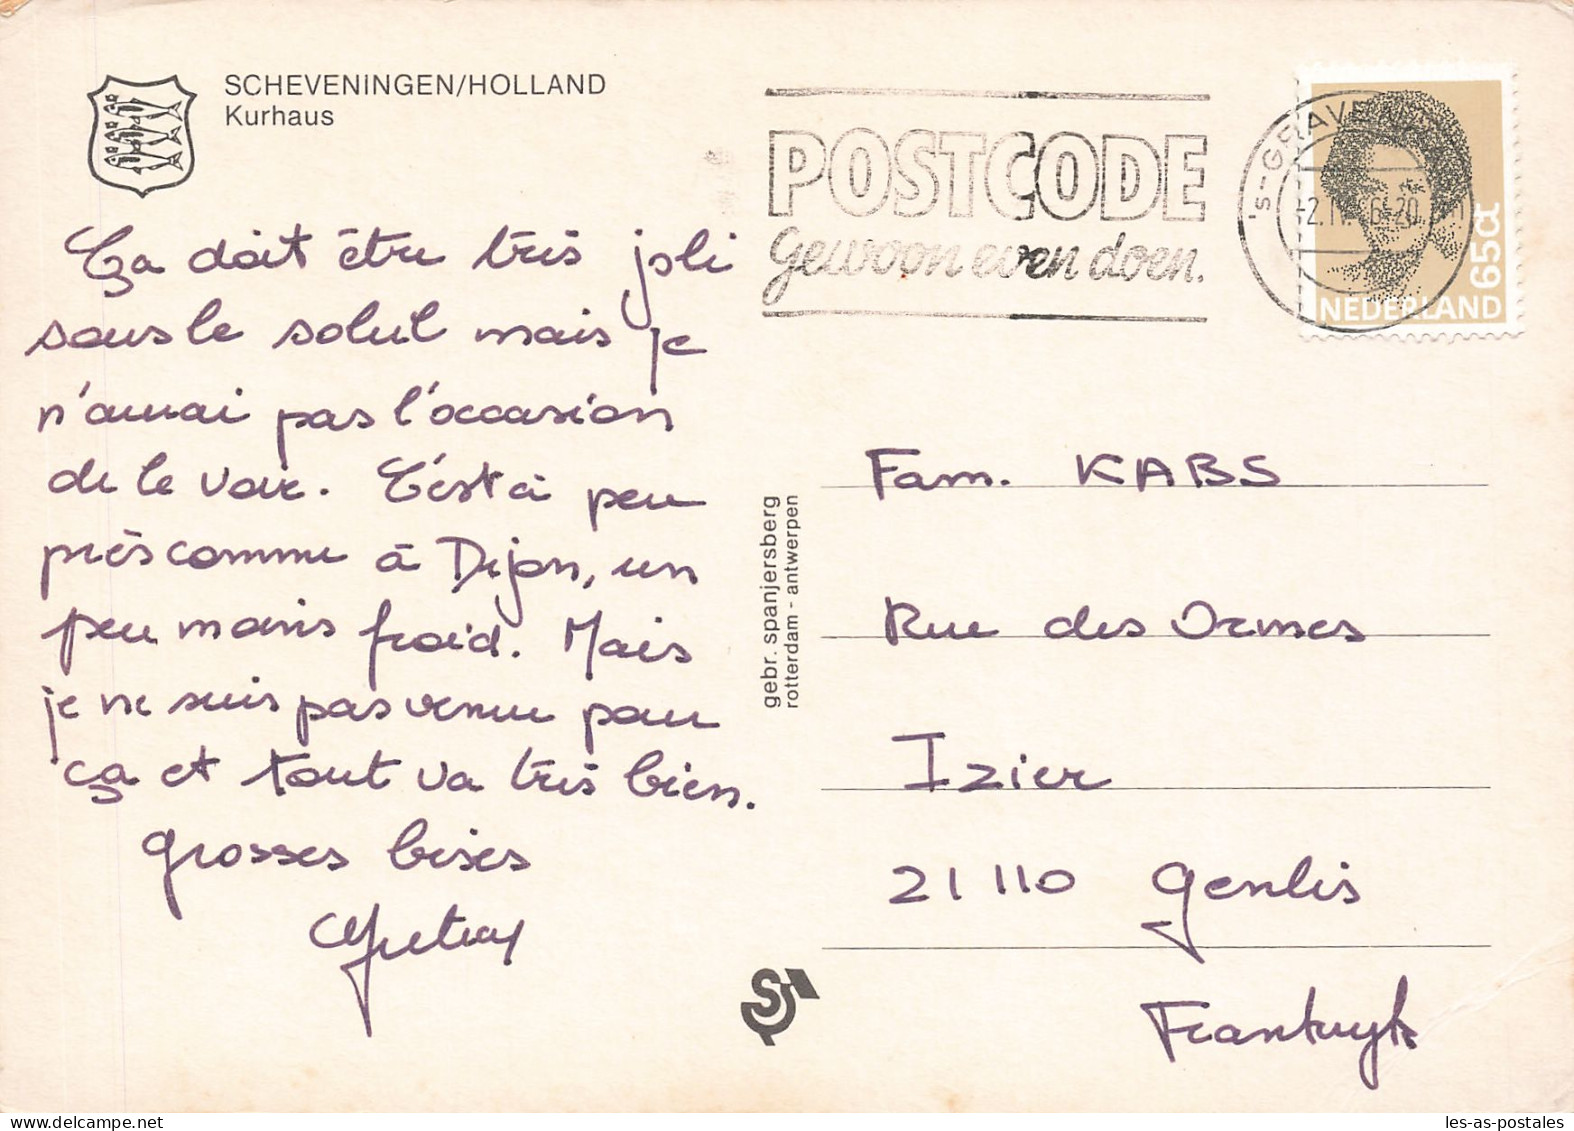 SCHEVENINGEN/HOLLAND
Kurhaus
Ça doit être très joli
sous le soleil mais je
n'aurai pas l'occasion
de le voir. C'est à peu
près comme à Dijon, un
peu moins froid. Mais
je ne suis pas venue pour
ça et tout va très bien.
Grosses bises
gebr. spanjersberg
rotterdam - antwerpen
POSTCODE
gewoon even doen.
's-GRAVEN
65ct
NEDERLAND
Fam. KABS
Rue des Ormes
Izier
21110 Genlis
Frankryk
les-as-postales